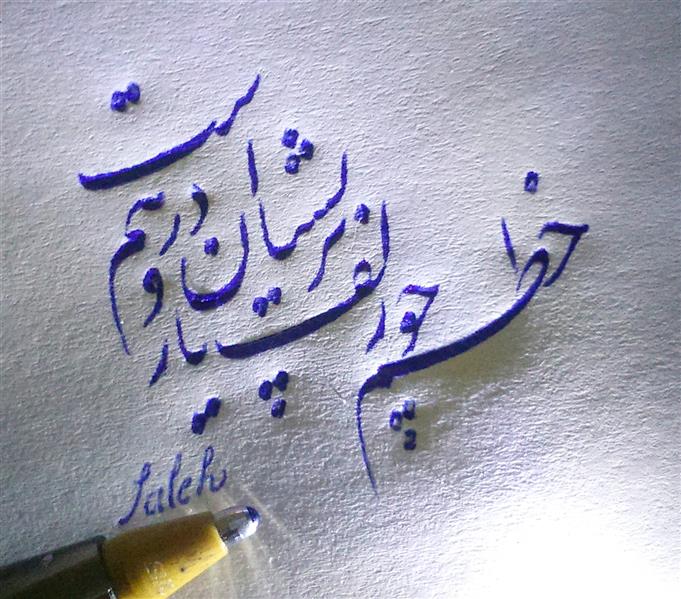 خطم چو زلف یار پریشان و درهم ست
Saleh